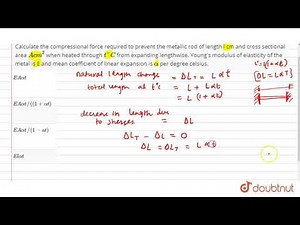 Calculate the compressional force required to prevent the metallic rod of length l cm and cross sectional
area A cm² when heated through t°C from expanding lengthwise. Young's modulus of elasticity of the
metal is E and mean coefficient of linear expansion is α per degree celsius.
EAαt
EAαt/(1 + αt)
EAαt/(1 − αt)
Elαt
natural length change = ΔL_T = L αt
total length at t°C = L + Lαt
= L (1 + αt)
decrease in length due
to stresses = ΔL
ΔL_T − ΔL = 0
ΔL = ΔL_T = Lαt
doubtnut